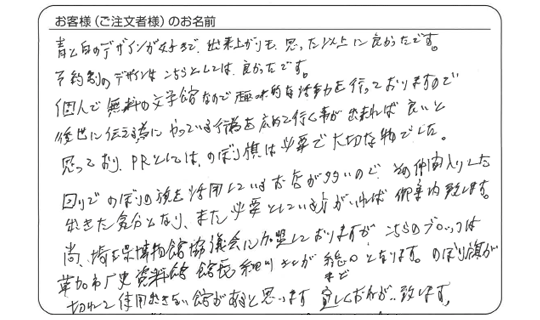 お客様(ご注文者様)のお名前
青と白のデザインが好きで、出来上がりも、思った以上に良かったです。
予約制のデザインはこちらとしては、良かったです。
個人で無料の文学館なので趣味的な活動を行っておりますので
後世に伝える為にやっている行為を広めて行く事が出来れば良いと
思っており、PRとしては、のぼり旗は必要で大切な物でした。
回りでのぼりの旗を活用しているお店が多いので、その仲間入りした
出きた気分となり、また必要としている方がいれば御案内致します。
尚、埼玉県博物館協議会に加盟しておりますが、こちらのブロックは
草加市歴史資料館 館長 細川さんが 窓口となります。のぼり旗が
切れて使用出きない館があると思います 宜しくお願い致します。